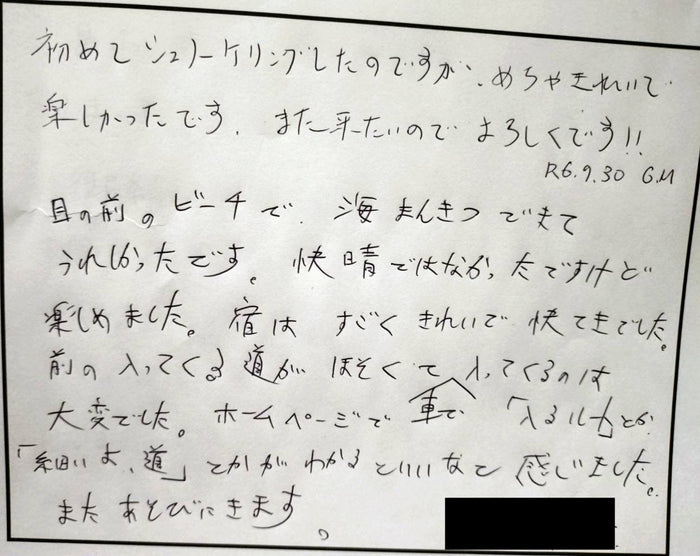 初めてシュノーケリングしたのですが、めちゃきれいで
楽しかったです。また来たいのでよろしくです!!
R6.9.30 G.M
目の前のビーチで、海まんきつできて
うれしかったです。快晴ではなかったですけど
楽しめました。宿はすごくきれいで快てきでした。
前の入ってくる道がほそくて入ってくるのは
大変でした。ホームページで車で「入る
とか
「細いよ、道」とかがわかるといいなと感じました。
またあそびにきます。